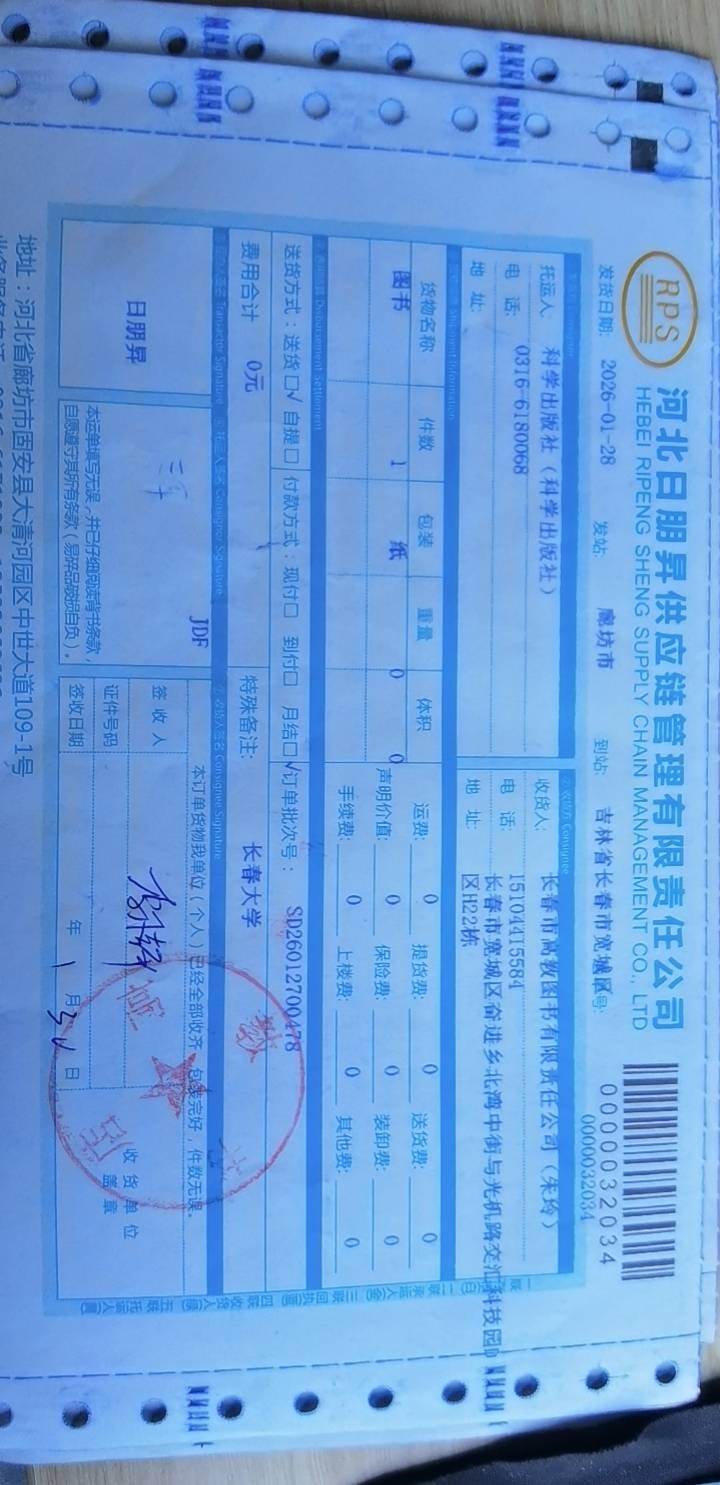 RPS
河北日朋昇供应链管理有限责任公司
HEBEI RIPENG SHENG SUPPLY CHAIN MANAGEMENT CO., LTD
0000032034
0000032034
发货日期: 2026-01-28 发站: 廊坊市 到站: 吉林省长春市宽城区号:
托运人: 科学出版社（科学出版社）
电 话: 0316-6180068
地 址:
收货方 Consignee
收货人: 长春市高教图书有限责任公司（朱玲）
电 话: 15104415584
地 址: 长春市宽城区奋进乡北湾中街与光机路交汇科技园D
区H22栋
Shipment Information
货物名称 件数 包装 重量 体积
图书 1 纸 0 0
运费: 0 提货费: 0 送货费: 0
声明价值: 0 保险费: 0 装卸费: 0
手续费: 0 上楼费: 0 其他费: 0
Disbursement Settlement
送货方式：送货□√ 自提□ 付款方式：现付□ 到付□ 月结□√ 订单批次号： SD26012700478
费用合计 0元 特殊备注: 长春大学
Transactor Signature
Consignor Signature
Consignee Signature
日朋昇
JDF
本运单填写无误，并已仔细阅读背书条款，
自愿遵守其所有条款（易碎品破损自负）。
本订单货物我单位（个人）已经全部收齐，包装完好，件数无误。
签 收 人
证件号码
签收日期 年 1 月 30 日
收 货 单 位
盖 章
地址：河北省廊坊市固安县大清河园区中世大道109-1号